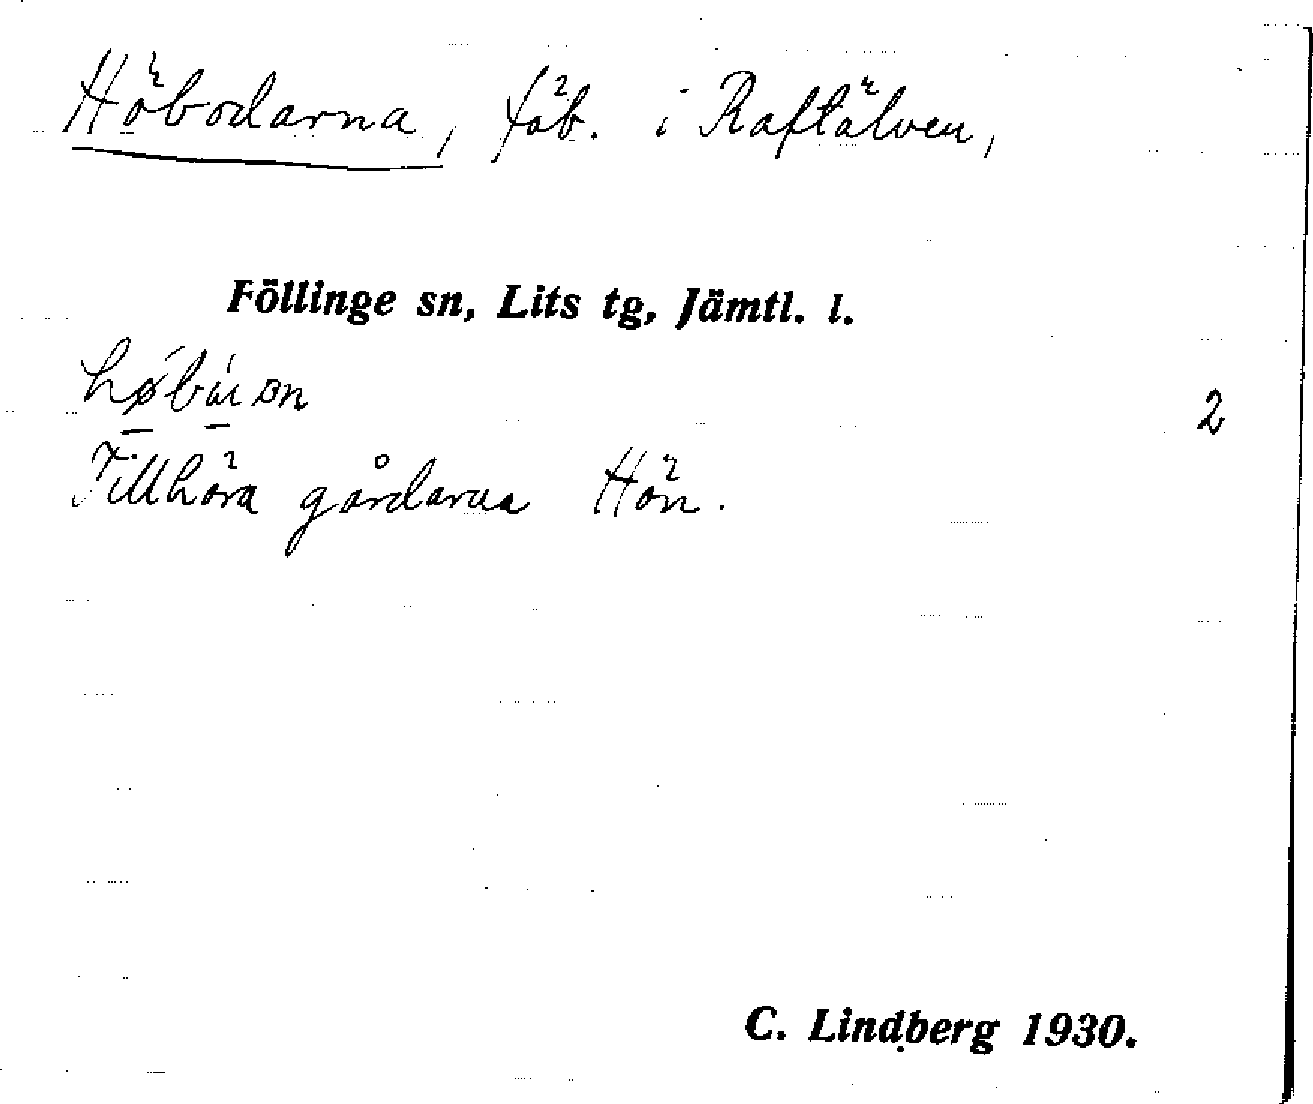 Höbodarna, fäb. i Raftälven,
Föllinge sn, Lits tg, Jämtl. l.
2
Tillhöra gårdarna Hön.
C. Lindberg 1930.